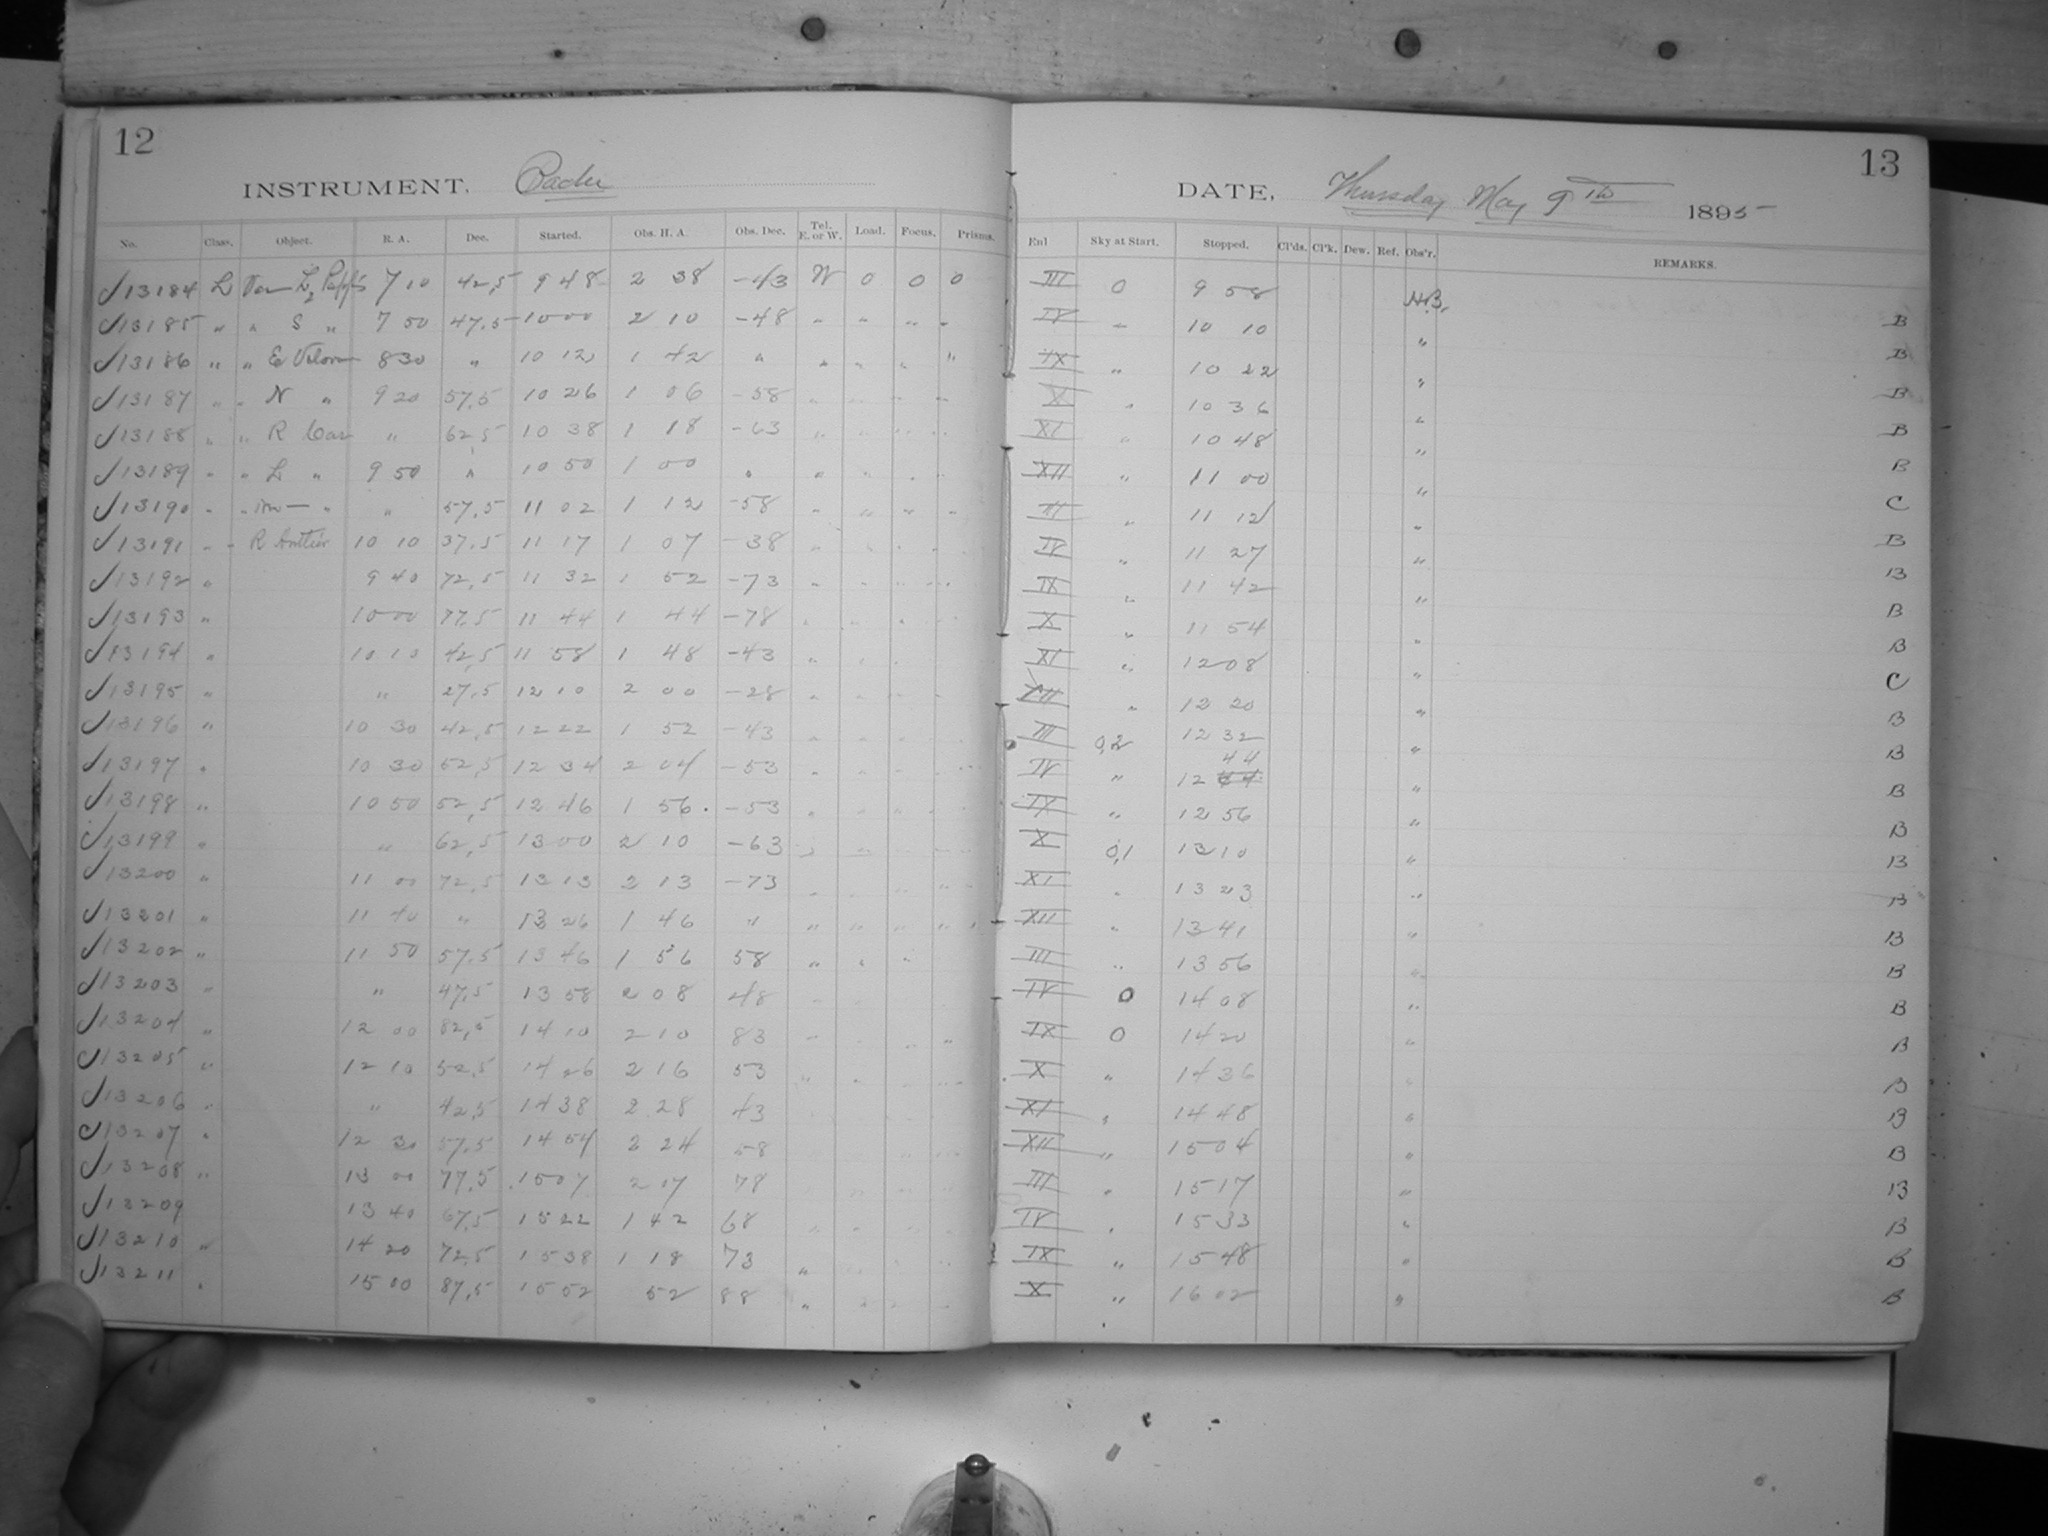 12
INSTRUMENT,
No. Class. Object. R. A. Dec. Started. Obs. H. A. Obs. Dec. Tel. E. or W. Load. Focus. Prisms.
J13184 L 7 10 42,5 9 48 2 38 -43 W 0 0 0
J13185 " " S " 7 50 47,5 10 00 2 10 -48 " " " "
J13186 " " 8 30 " 10 12 1 42 " " " " "
J13187 " " N " 9 20 57,5 10 26 1 06 -58 " " " "
J13188 " " R Car " 62,5 10 38 1 18 -63 " " " "
J13189 " " L " 9 50 " 10 50 1 00 " " " " "
J13190 " " " " 57,5 11 02 1 12 -58 " " " "
J13191 " " R Antliae 10 10 37,5 11 17 1 07 -38 " " " "
J13192 " 9 40 72,5 11 32 1 52 -73 " " " "
J13193 " 10 00 77,5 11 44 1 44 -78 " " " "
J13194 " 10 10 42,5 11 58 1 48 -43 " " "
J13195 " " 27,5 12 10 2 00 -28 " " " "
J13196 " 10 30 42,5 12 22 1 52 -43 " " " "
J13197 " 10 30 52,5 12 34 2 04 -53 " " " "
J13198 " 10 50 52,5 12 46 1 56 -53 " " " "
J13199 " " 62,5 13 00 2 10 -63 " " " "
J13200 " 11 00 72,5 13 13 2 13 -73 " " " "
J13201 " 11 40 " 13 26 1 46 " " " " "
J13202 " 11 50 57,5 13 46 1 56 58 " " "
J13203 " " 47,5 13 58 2 08 48
J13204 " 12 00 82,5 14 10 2 10 83 " " "
J13205 " 12 10 52,5 14 26 2 16 53 " " " "
J13206 " " 42,5 14 38 2 28 43
J13207 " 12 30 57,5 14 54 2 24 58
J13208 " 13 00 77,5 15 07 2 07 78
J13209 13 40 67,5 15 22 1 42 68
J13210 " 14 20 72,5 15 38 1 18 73 "
J13211 " 15 00 87,5 15 52 52 88 "
13
DATE, Thursday May 9th 1895
Enl Sky at Start. Stopped. Cl'ds. Cl'k. Dew. Ref. Obs'r. REMARKS.
III 0 9 58 H.B.
IV " 10 10 " B
IX " 10 22 " B
X " 10 36 " B
XI " 10 48 " B
XII " 11 00 " B
III " 11 12 " C
IV " 11 27 " B
IX " 11 42 " B
X " 11 54 " B
XI " 12 08 " B
XII " 12 20 " C
III 0,2 12 32 " B
44
IV " 12 " B
IX " 12 56 " B
X 0,1 13 10 " B
XI " 13 23 " B
XII " 13 41 " B
III " 13 56 " B
IV 0 14 08 " B
IX 0 14 20 " B
X " 14 36 " B
XI " 14 48 " B
XII " 15 04 " B
III " 15 17 " B
IV " 15 33 " B
IX " 15 48 " B
X " 16 02 " B